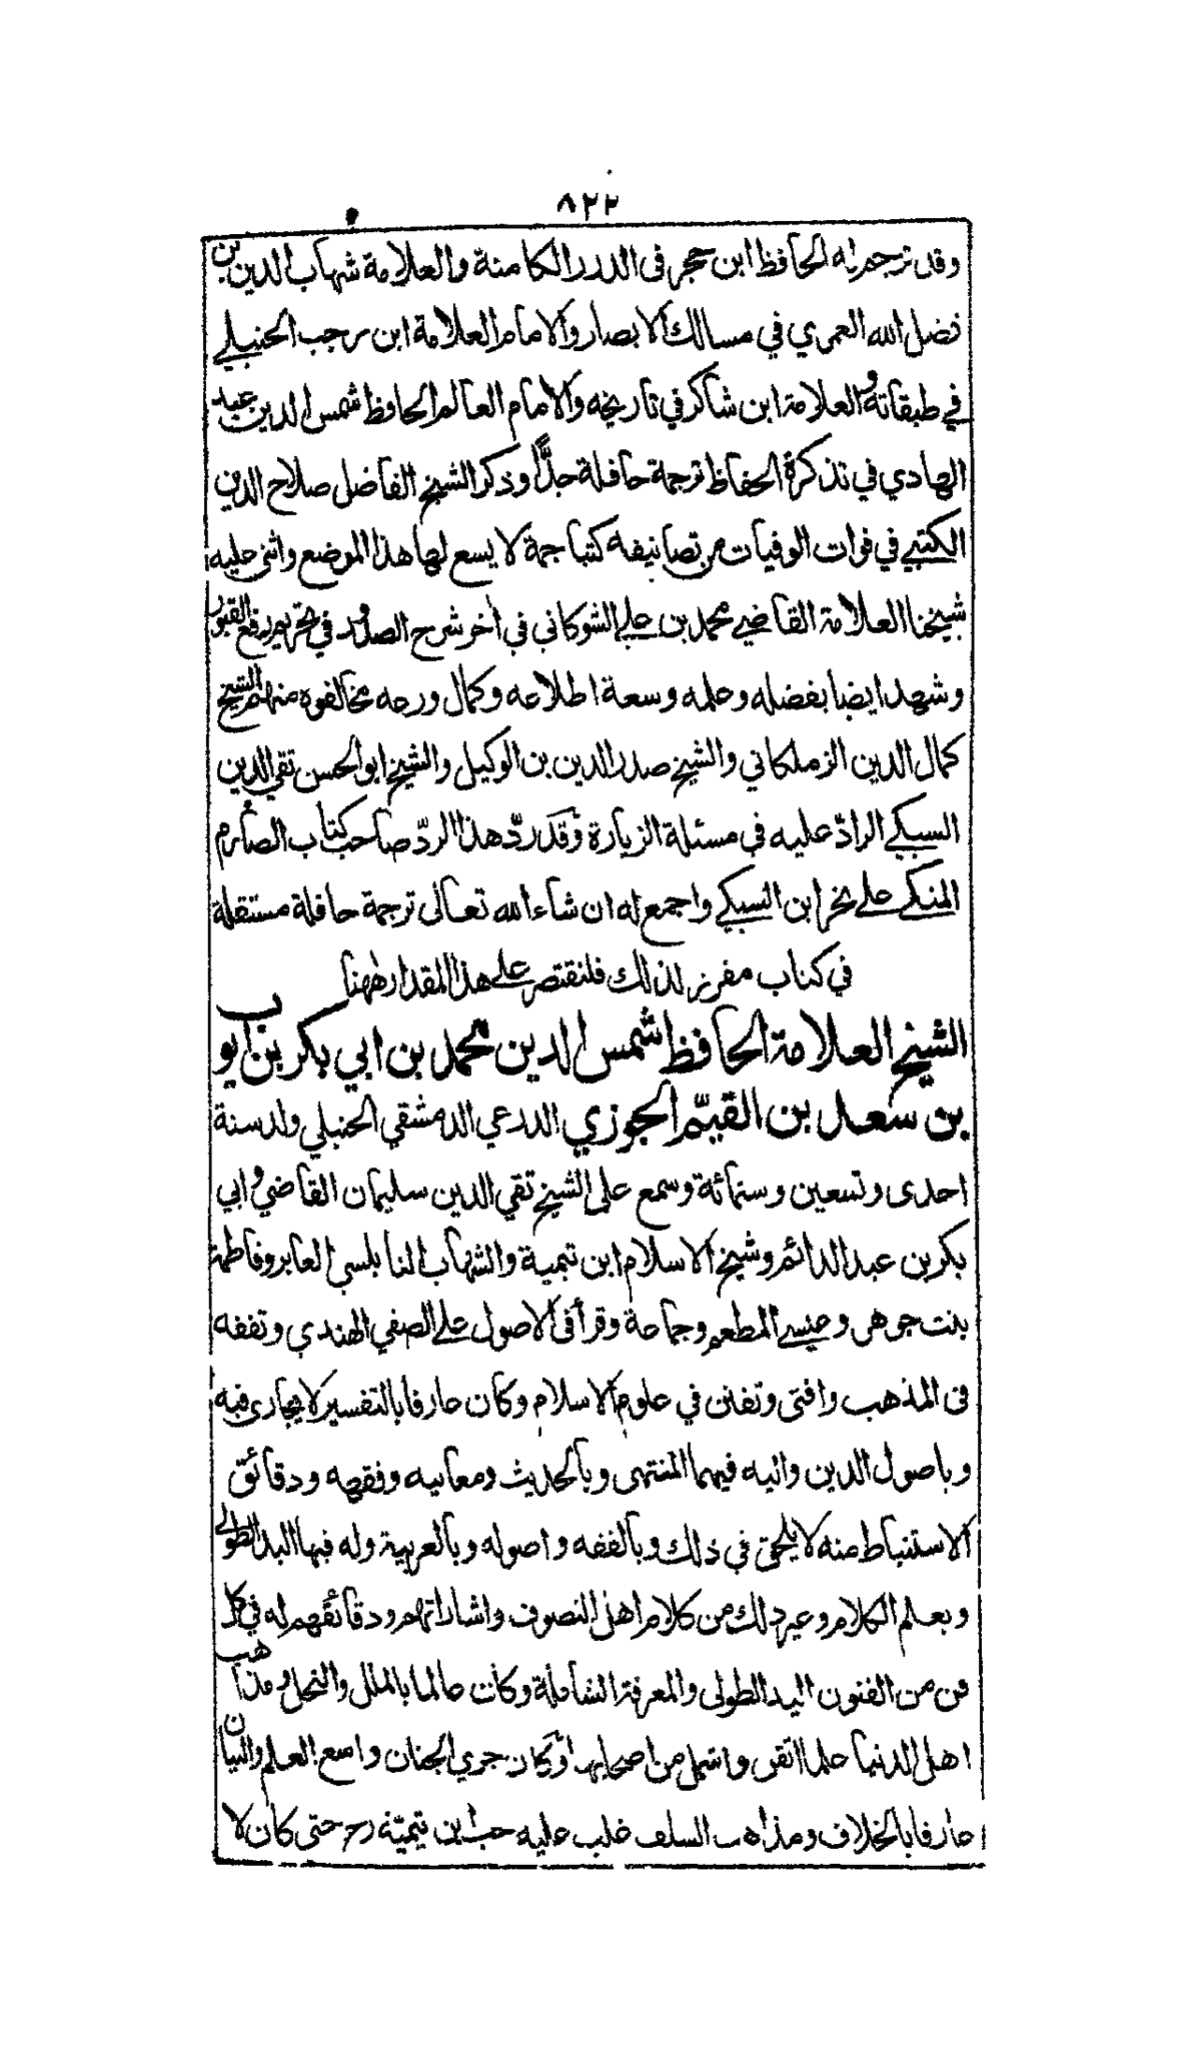 ٨٢٢
وقد ترجم له الحافظ ابن حجر فى الدرر الكامنة والعلامة شهاب الدين بن
فضل الله العمري في مسالك الابصار والامام العلامة ابن رجب الحنبلي
في طبقاته والعلامة ابن شاكر في تاريخه والامام العالم الحافظ شمس الدين عبد
الهادي في تذكرة الحفاظ ترجمة حافلة جدًّا وذكر الشيخ الفاضل صلاح الدين
الكتبي في فوات الوفيات من تصانيفه كتبا جمة لا يسع لها هذا الموضع واثنى عليه
شيخنا العلامة القاضي محمد بن علي الشوكاني في أخر شرح الصدور في تحريم رفع القبور
وشهد ايضا بفضله وعلمه وسعة اطلاعه وكمال ورعه مخالفوه منهم الشيخ
كمال الدين الزملكاني والشيخ صدر الدين بن الوكيل والشيخ ابو الحسن تقي الدين
السبكي الرادّ عليه في مسئلة الزيارة وقد ردّ هذا الردّ صاحب كتاب الصارم
المنكي على نحر ابن السبكي واجمع له ان شاء الله تعالى ترجمة حافلة مستقلة
في كتاب مفرز لذلك فلنقتصر على هذا المقدار ههنا
الشيخ العلامة الحافظ شمس الدين محمد بن ابي بكر بن ايوب
بن سعد بن القيّم الجوزي الدرعي الدمشقي الحنبلي ولد سنة
احدى وتسعين وستمائة وسمع على الشيخ تقي الدين سليمان القاضي وابي
بكر بن عبد الدائم وشيخ الاسلام ابن تيمية والشهاب النابلسي العابر وفاطمة
بنت جوهر وعيسى المطعم وجماعة وقرأ فى الاصول على الصفي الهندي وتفقه
فى المذهب وافتى وتفنن في علوم الاسلام وكان عارفا بالتفسير لا يجارى فيه
وباصول الدين واليه فيهما المنتهى وبالحديث ومعانيه وفقهه ودقائق
الاستنباط منه لا يلحق في ذلك وبالفقه واصوله وبالعربية وله فيها اليد الطولى
وبعلم الكلام وغير ذلك من كلام اهل التصوف واشاراتهم ودقائقهم له في كل
فن من الفنون اليد الطولى والمعرفة الشاملة وكان عالما بالملل والنحل ومذاهب
اهل الدنيا علما اتقن واشمل من اصحابها وكان جري الجنان واسع العلم والبيان
عارفا بالخلاف ومذاهب السلف غلب عليه حب ابن تيميّة رح حتى كان لا